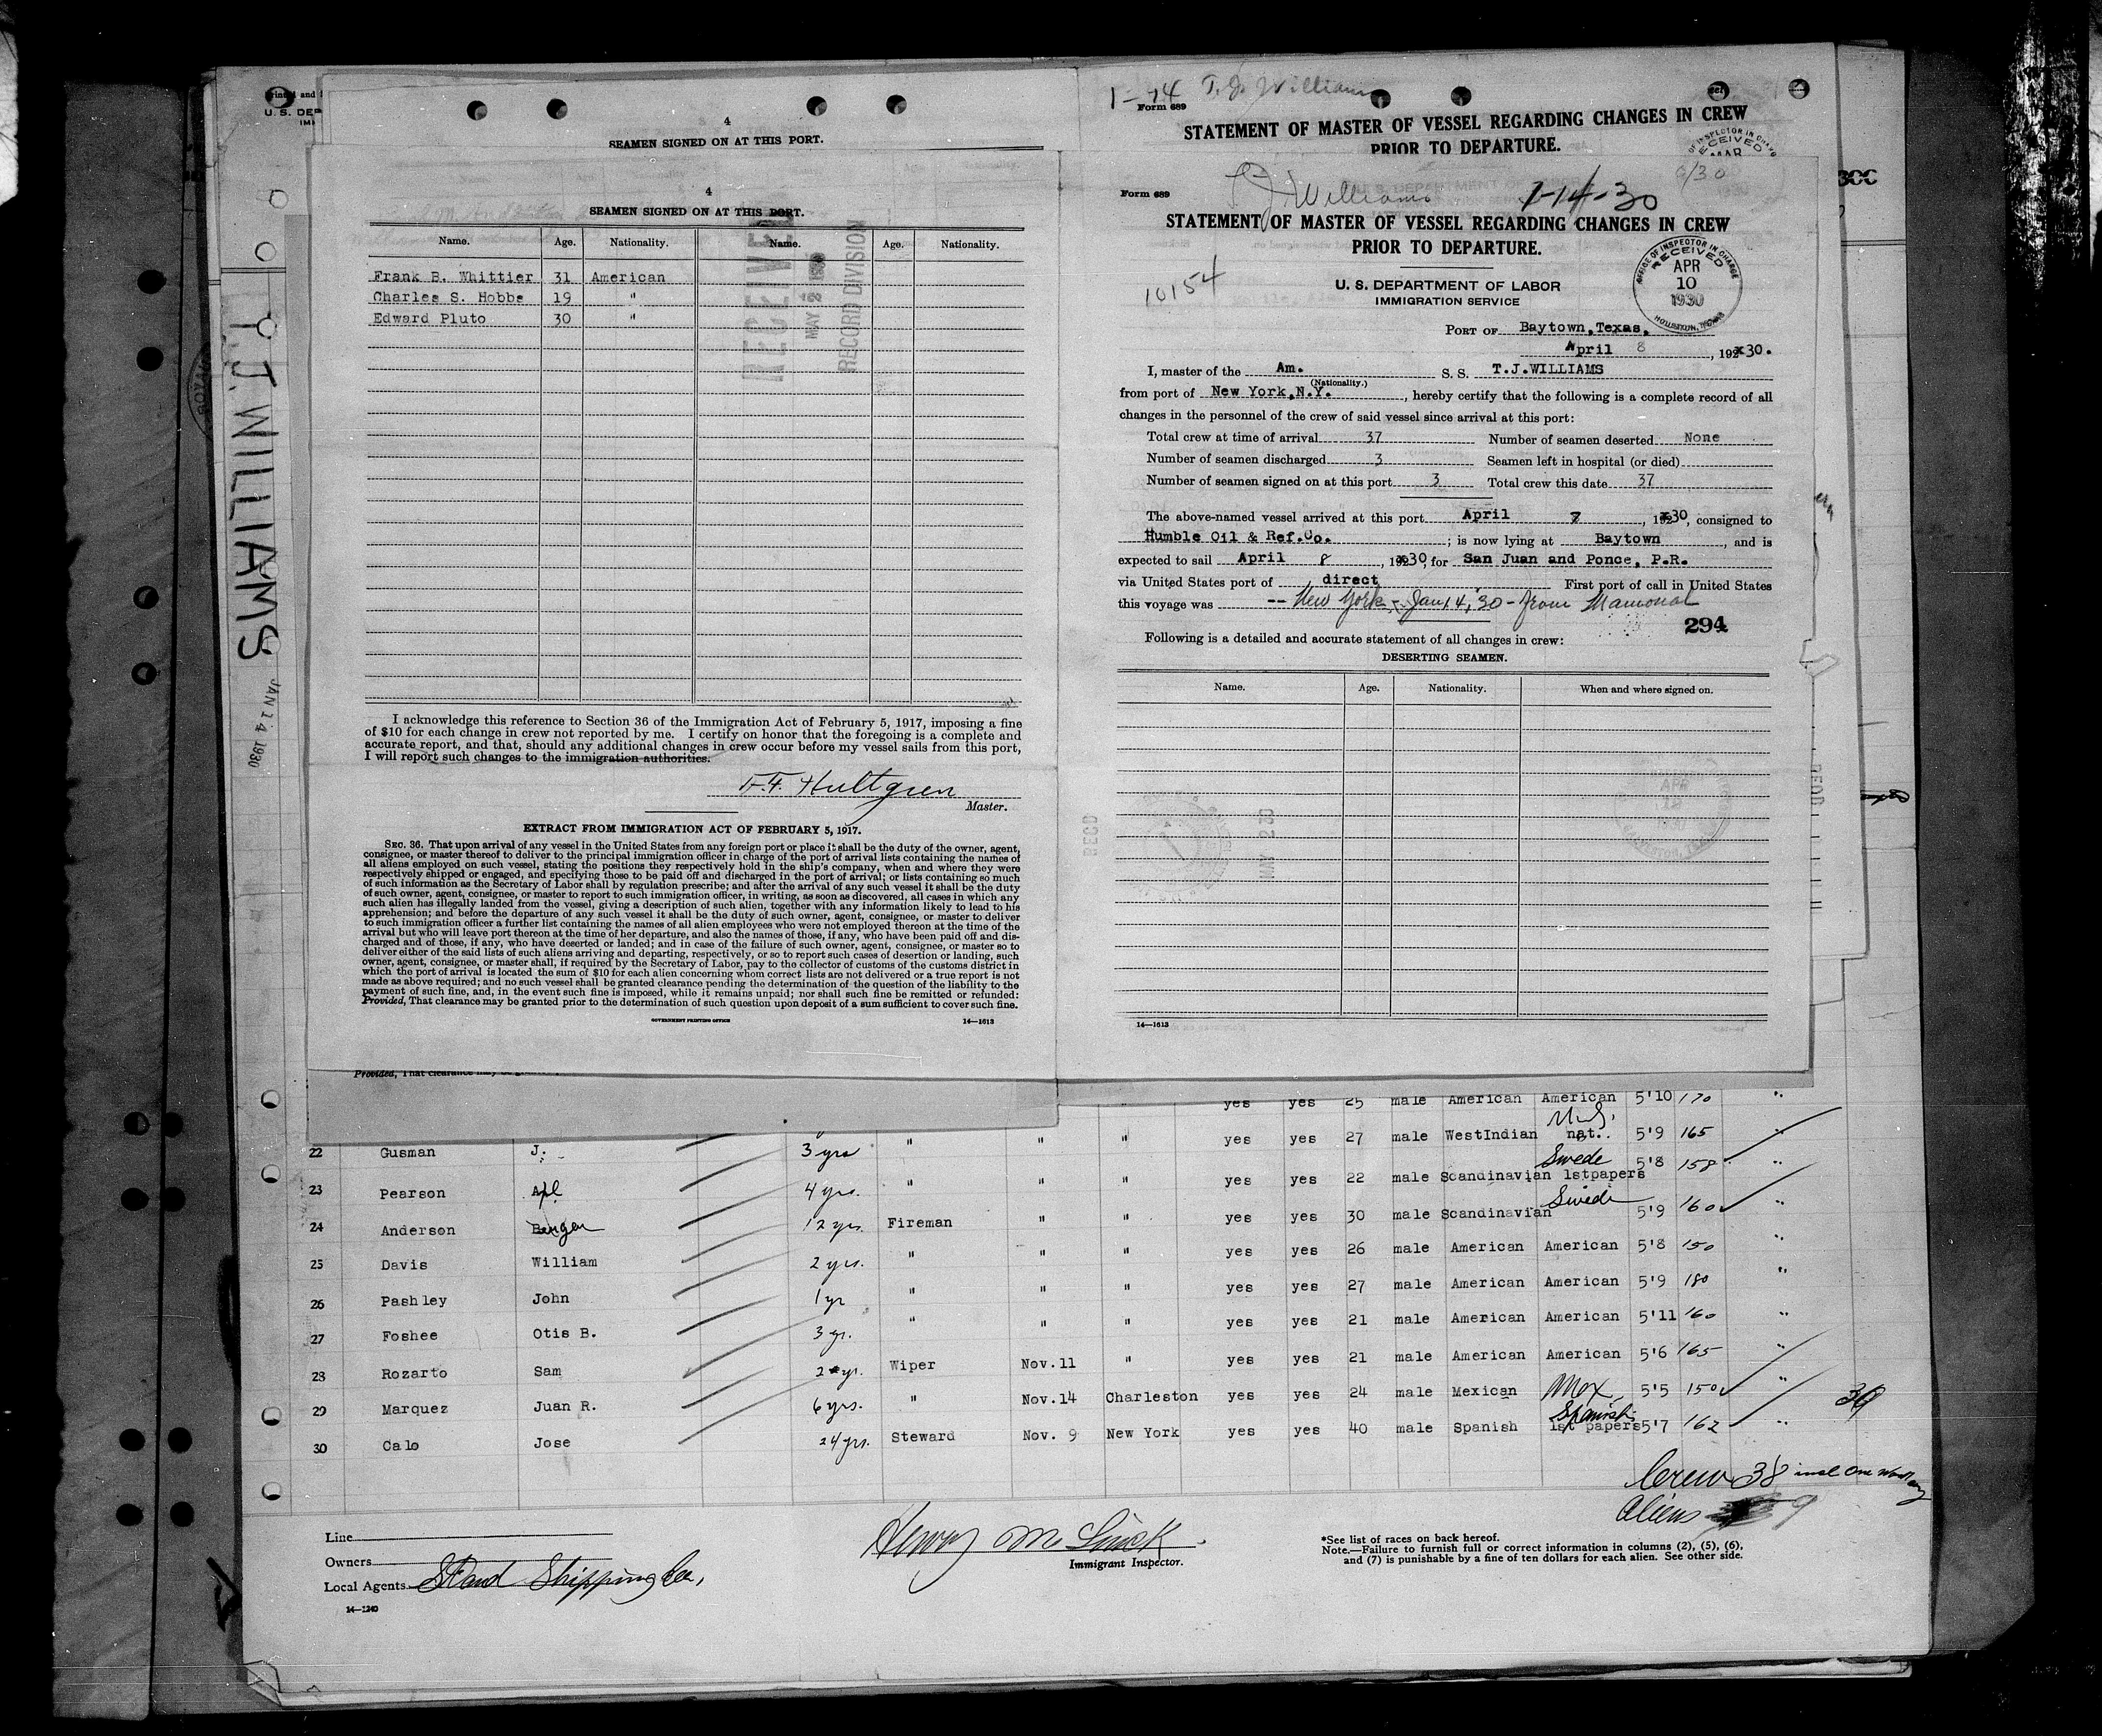 T.J. WILLIAMS
JAN 14 1930
4
SEAMEN SIGNED ON AT THIS PORT.
4
SEAMEN SIGNED ON AT THIS PORT.
Name. Age. Nationality. Name. Age. Nationality.
Frank B. Whittier 31 American
Charles S. Hobbs 19 "
Edward Pluto 30 "
RECEIVED
MAY 2 1930
RECORD DIVISION
I acknowledge this reference to Section 36 of the Immigration Act of February 5, 1917, imposing a fine
of $10 for each change in crew not reported by me. I certify on honor that the foregoing is a complete and
accurate report, and that, should any additional changes in crew occur before my vessel sails from this port,
I will report such changes to the immigration authorities.
F.F. Hultgren
Master.
EXTRACT FROM IMMIGRATION ACT OF FEBRUARY 5, 1917.
SEC. 36. That upon arrival of any vessel in the United States from any foreign port or place it shall be the duty of the owner, agent,
consignee, or master thereof to deliver to the principal immigration officer in charge of the port of arrival lists containing the names of
all aliens employed on such vessel, stating the positions they respectively hold in the ship's company, when and where they were
respectively shipped or engaged, and specifying those to be paid off and discharged in the port of arrival; or lists containing so much
of such information as the Secretary of Labor shall by regulation prescribe; and after the arrival of any such vessel it shall be the duty
of such owner, agent, consignee, or master to report to such immigration officer, in writing, as soon as discovered, all cases in which any
such alien has illegally landed from the vessel, giving a description of such alien, together with any information likely to lead to his
apprehension; and before the departure of any such vessel it shall be the duty of such owner, agent, consignee, or master to deliver
to such immigration officer a further list containing the names of all alien employees who were not employed thereon at the time of the
arrival but who will leave port thereon at the time of her departure, and also the names of those, if any, who have been paid off and dis-
charged and of those, if any, who have deserted or landed; and in case of the failure of such owner, agent, consignee, or master so to
deliver either of the said lists of such aliens arriving and departing, respectively, or so to report such cases of desertion or landing, such
owner, agent, consignee, or master shall, if required by the Secretary of Labor, pay to the collector of customs of the customs district in
which the port of arrival is located the sum of $10 for each alien concerning whom correct lists are not delivered or a true report is not
made as above required; and no such vessel shall be granted clearance pending the determination of the question of the liability to the
payment of such fine, and, in the event such fine is imposed, while it remains unpaid; nor shall such fine be remitted or refunded:
Provided, That clearance may be granted prior to the determination of such question upon deposit of a sum sufficient to cover such fine.
GOVERNMENT PRINTING OFFICE 14—1613
1-14 T.J. Williams
Form 689
STATEMENT OF MASTER OF VESSEL REGARDING CHANGES IN CREW
PRIOR TO DEPARTURE.
Form 689
T.J. Williams 1-14-30
STATEMENT OF MASTER OF VESSEL REGARDING CHANGES IN CREW
PRIOR TO DEPARTURE.
10154
U. S. DEPARTMENT OF LABOR
IMMIGRATION SERVICE
OFFICE OF INSPECTOR IN CHARGE
RECEIVED
APR
10
1930
HOUSTON, TEXAS
PORT OF Baytown, Texas,
April 8, 192x30.
I, master of the Am. S. S. T.J.WILLIAMS
(Nationality.)
from port of New York, N.Y., hereby certify that the following is a complete record of all
changes in the personnel of the crew of said vessel since arrival at this port:
Total crew at time of arrival 37 Number of seamen deserted None
Number of seamen discharged 3 Seamen left in hospital (or died)
Number of seamen signed on at this port 3 Total crew this date 37
The above-named vessel arrived at this port April 7, 192x30, consigned to
Humble Oil & Ref.Co.; is now lying at Baytown, and is
expected to sail April 8, 192x30, for San Juan and Ponce, P.R.
via United States port of direct First port of call in United States
this voyage was -- New York - Jan 14, '30 - from Mamonal
294
Following is a detailed and accurate statement of all changes in crew:
DESERTING SEAMEN.
Name. Age. Nationality. When and where signed on.
RECD
MAY 2 30
14—1613
yes yes 25 male American American 5'10 170 "
22 Gusman J. 3 yrs " " " yes yes 27 male WestIndian U.S. nat. 5'9 165 "
23 Pearson Apl 4 yrs. " " " yes yes 22 male Scandinavian Swede 1stpapers 5'8 158 "
24 Anderson Birger 12 yrs. Fireman " " yes yes 30 male Scandinavian Swede 5'9 160 "
25 Davis William 2 yrs. " " " yes yes 26 male American American 5'8 150 "
26 Pashley John 1 yr " " " yes yes 27 male American American 5'9 180 "
27 Foshee Otis B. 3 yr. " " " yes yes 21 male American American 5'11 160 "
28 Rozarto Sam 2 yr. Wiper Nov.11 " yes yes 21 male American American 5'6 165 "
29 Marquez Juan R. 6 yrs. " Nov.14 Charleston yes yes 24 male Mexican Mex 5'5 150 "
30 Calo Jose 24 yrs. Steward Nov. 9 New York yes yes 40 male Spanish Spanish 1st papers 5'7 162 "
Crew 38 incl One
Aliens 9
Line
Owners
Local Agents Stand Shipping Co.,
14—1240
Immigrant Inspector.
*See list of races on back hereof.
Note.—Failure to furnish full or correct information in columns (2), (5), (6),
and (7) is punishable by a fine of ten dollars for each alien. See other side.